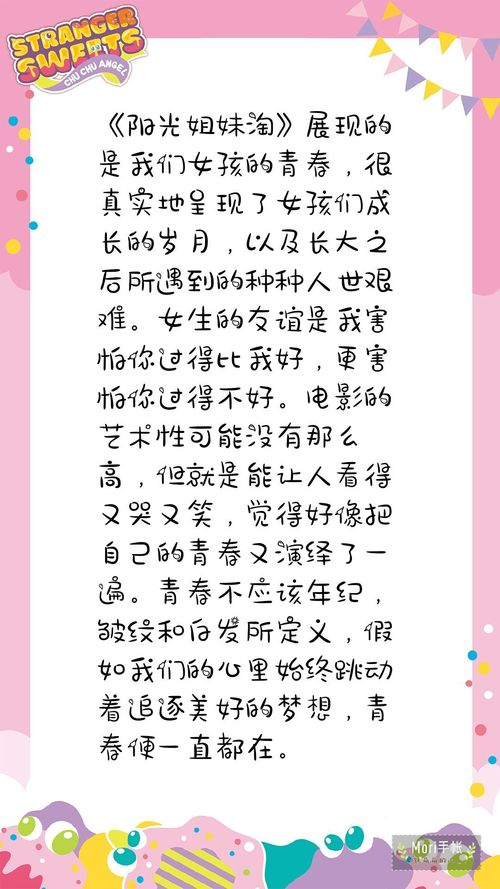 STRANGER
SWEETS
CHU CHU ANGEL
《阳光姐妹淘》展现的
是我们女孩的青春，很
真实地呈现了女孩们成
长的岁月，以及长大之
后所遇到的种种人世艰
难。女生的友谊是我害
怕你过得比我好，更害
怕你过得不好。电影的
艺术性可能没有那么
高，但就是能让人看得
又哭又笑，觉得好像把
自己的青春又演绎了一
遍。青春不应该年纪，
皱纹和白发所定义，假
如我们的心里始终跳动
着追逐美好的梦想，青
春便一直都在。
Mori手帐